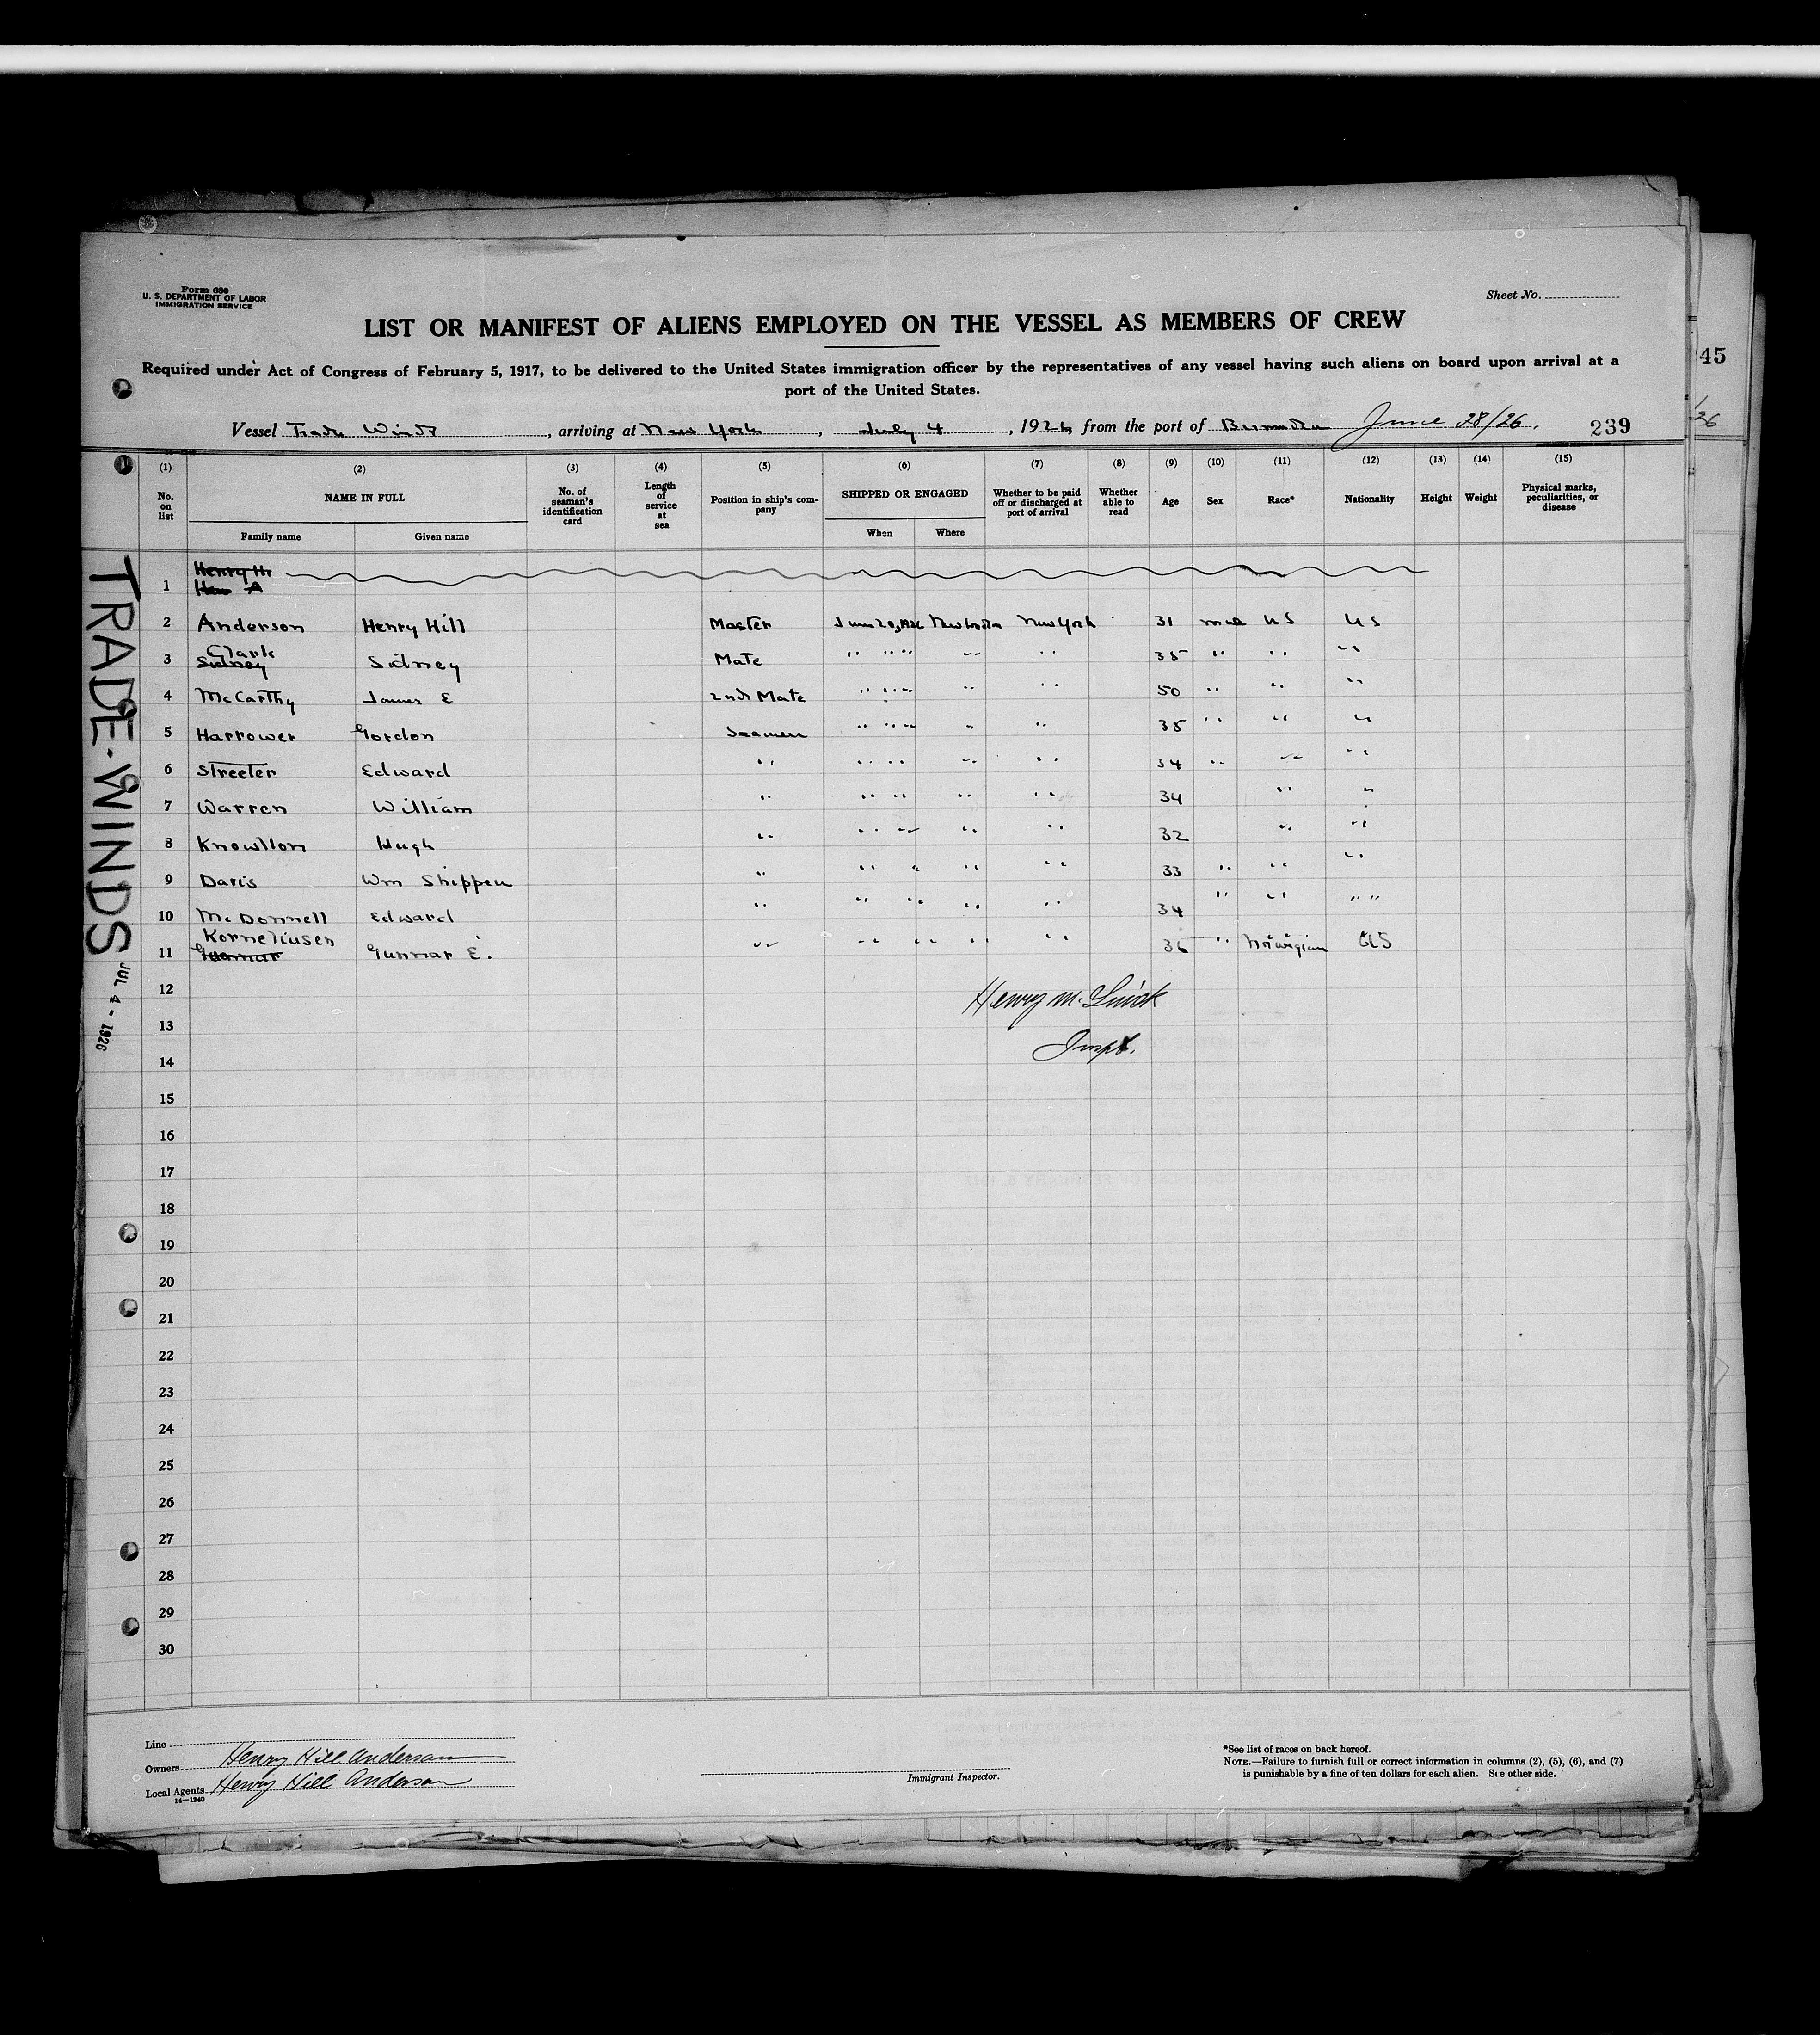 Form 680
U. S. DEPARTMENT OF LABOR
IMMIGRATION SERVICE
Sheet No.
LIST OR MANIFEST OF ALIENS EMPLOYED ON THE VESSEL AS MEMBERS OF CREW
Required under Act of Congress of February 5, 1917, to be delivered to the United States immigration officer by the representatives of any vessel having such aliens on board upon arrival at a
port of the United States.
45
Vessel Trade Winds, arriving at New York, July 4, 1926 from the port of Bermuda June 28/26. 239
26
(1) (2) (3) (4) (5) (6) (7) (8) (9) (10) (11) (12) (13) (14) (15)
No. on list NAME IN FULL No. of seaman's identification card Length of service at sea Position in ship's company SHIPPED OR ENGAGED Whether to be paid off or discharged at port of arrival Whether able to read Age Sex Race* Nationality Height Weight Physical marks, peculiarities, or disease
Family name Given name When Where
Henry H.
1 A
2 Anderson Henry Hill Master June 20, 1926 New London New York 31 male US US
Clark
3 Sidney Sidney Mate " " " " " 35 " " "
4 McCarthy James E 2nd Mate " " " " " 50 " " "
5 Harrower Gordon Seamen " " " " " 35 " " "
6 Streeter Edward " " " " " 34 " " "
7 Warren William " " " " " 34 " "
8 Knowlton Hugh " " " " " 32 " "
9 Davis Wm Shippen " " " " " 33 " " "
10 McDonnell Edward " " " " " 34 " " " "
Korneliusen
11 Gunnar Gunnar E. " " " " " 36 " Norwegian US
12
Henry M.
13
Inspt.
14
15
16
17
18
19
20
21
22
23
24
25
26
27
28
29
30
TRADE-WINDS JUL 4 - 1926
Line
Owners Henry Hill Anderson
Local Agents Henry Hill Anderson
14—1240
Immigrant Inspector.
*See list of races on back hereof.
NOTE.—Failure to furnish full or correct information in columns (2), (5), (6), and (7)
is punishable by a fine of ten dollars for each alien. See other side.